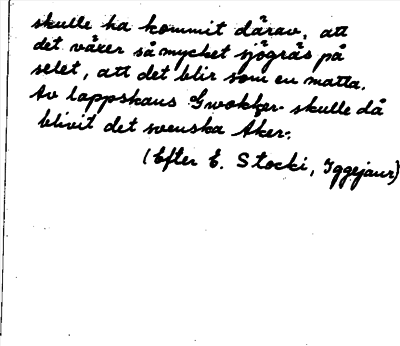 skulle ha kommit därav, att
det växer så mycket sjögräs på
selet, att det blir som en matta.
Av lappskans Gwokker skulle då
blivit det svenska Aker.
(Efter E. Stocki, Iggejaur)